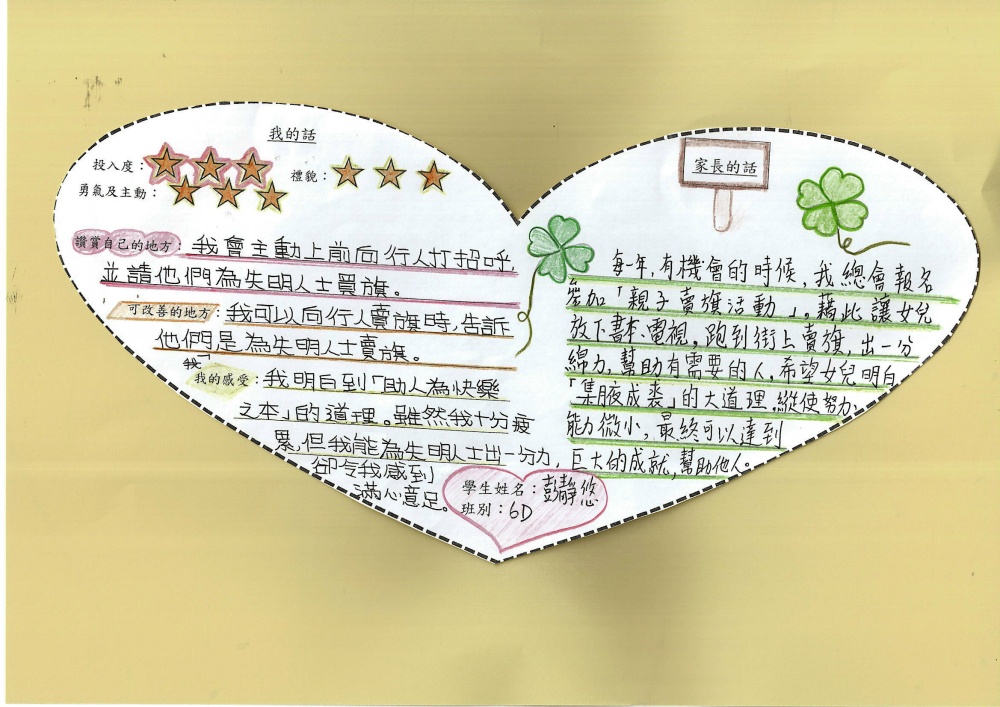 我的話
投入度：
禮貌：
勇氣及主動：
讚賞自己的地方：我會主動上前向行人打招呼，
並請他們為失明人士買旗。
可改善的地方：我可以向行人賣旗時，告訴
他們我是為失明人士賣旗。
我的感受：我明白到「助人為快樂
之本」的道理。雖然我十分疲
累，但我能為失明人士出一分力，
卻令我感到
滿心意足。
學生姓名：彭靜悠
班別：6D
家長的話
每年，有機會的時候，我總會報名
參加「親子賣旗活動」。藉此讓女兒
放下書本、電視，跑到街上賣旗，出一分
綿力，幫助有需要的人，希望女兒明白
「集腋成裘」的大道理，縱使努力、
能力微小，最終可以達到
巨大的成就，幫助他人。